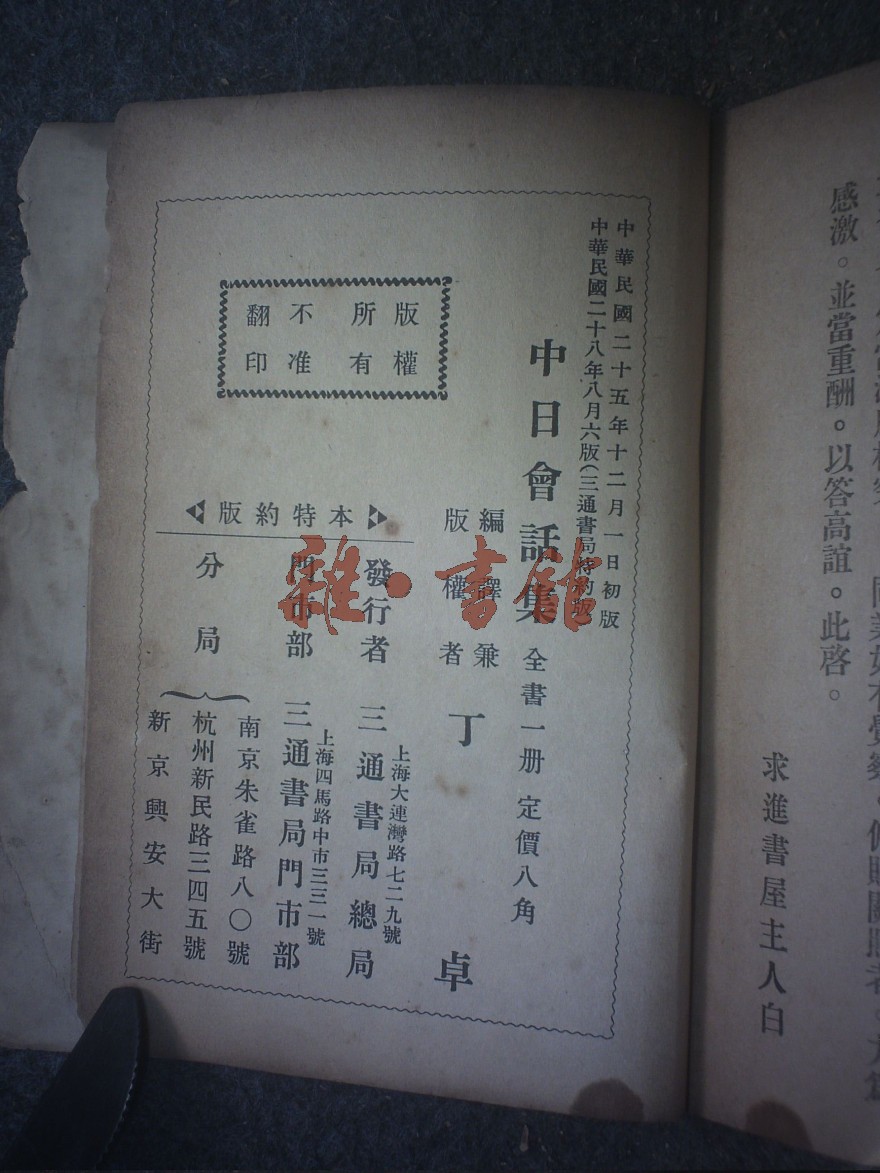 感激。並當重酬。以答高誼。此啓。
求進書屋主人白
中華民國二十五年十二月一日初版
中華民國二十八年八月六版(三通書局特約版)
中日會話集 全書一册 定價八角
編譯兼
版權者 丁卓
版權所有
不准翻印
本特約版
發行者 三通書局總局
上海大連灣路七二九號
門市部 三通書局門市部
上海四馬路中市三三一號
分局
南京朱雀路八〇號
杭州新民路三四五號
新京興安大街
雜·書館